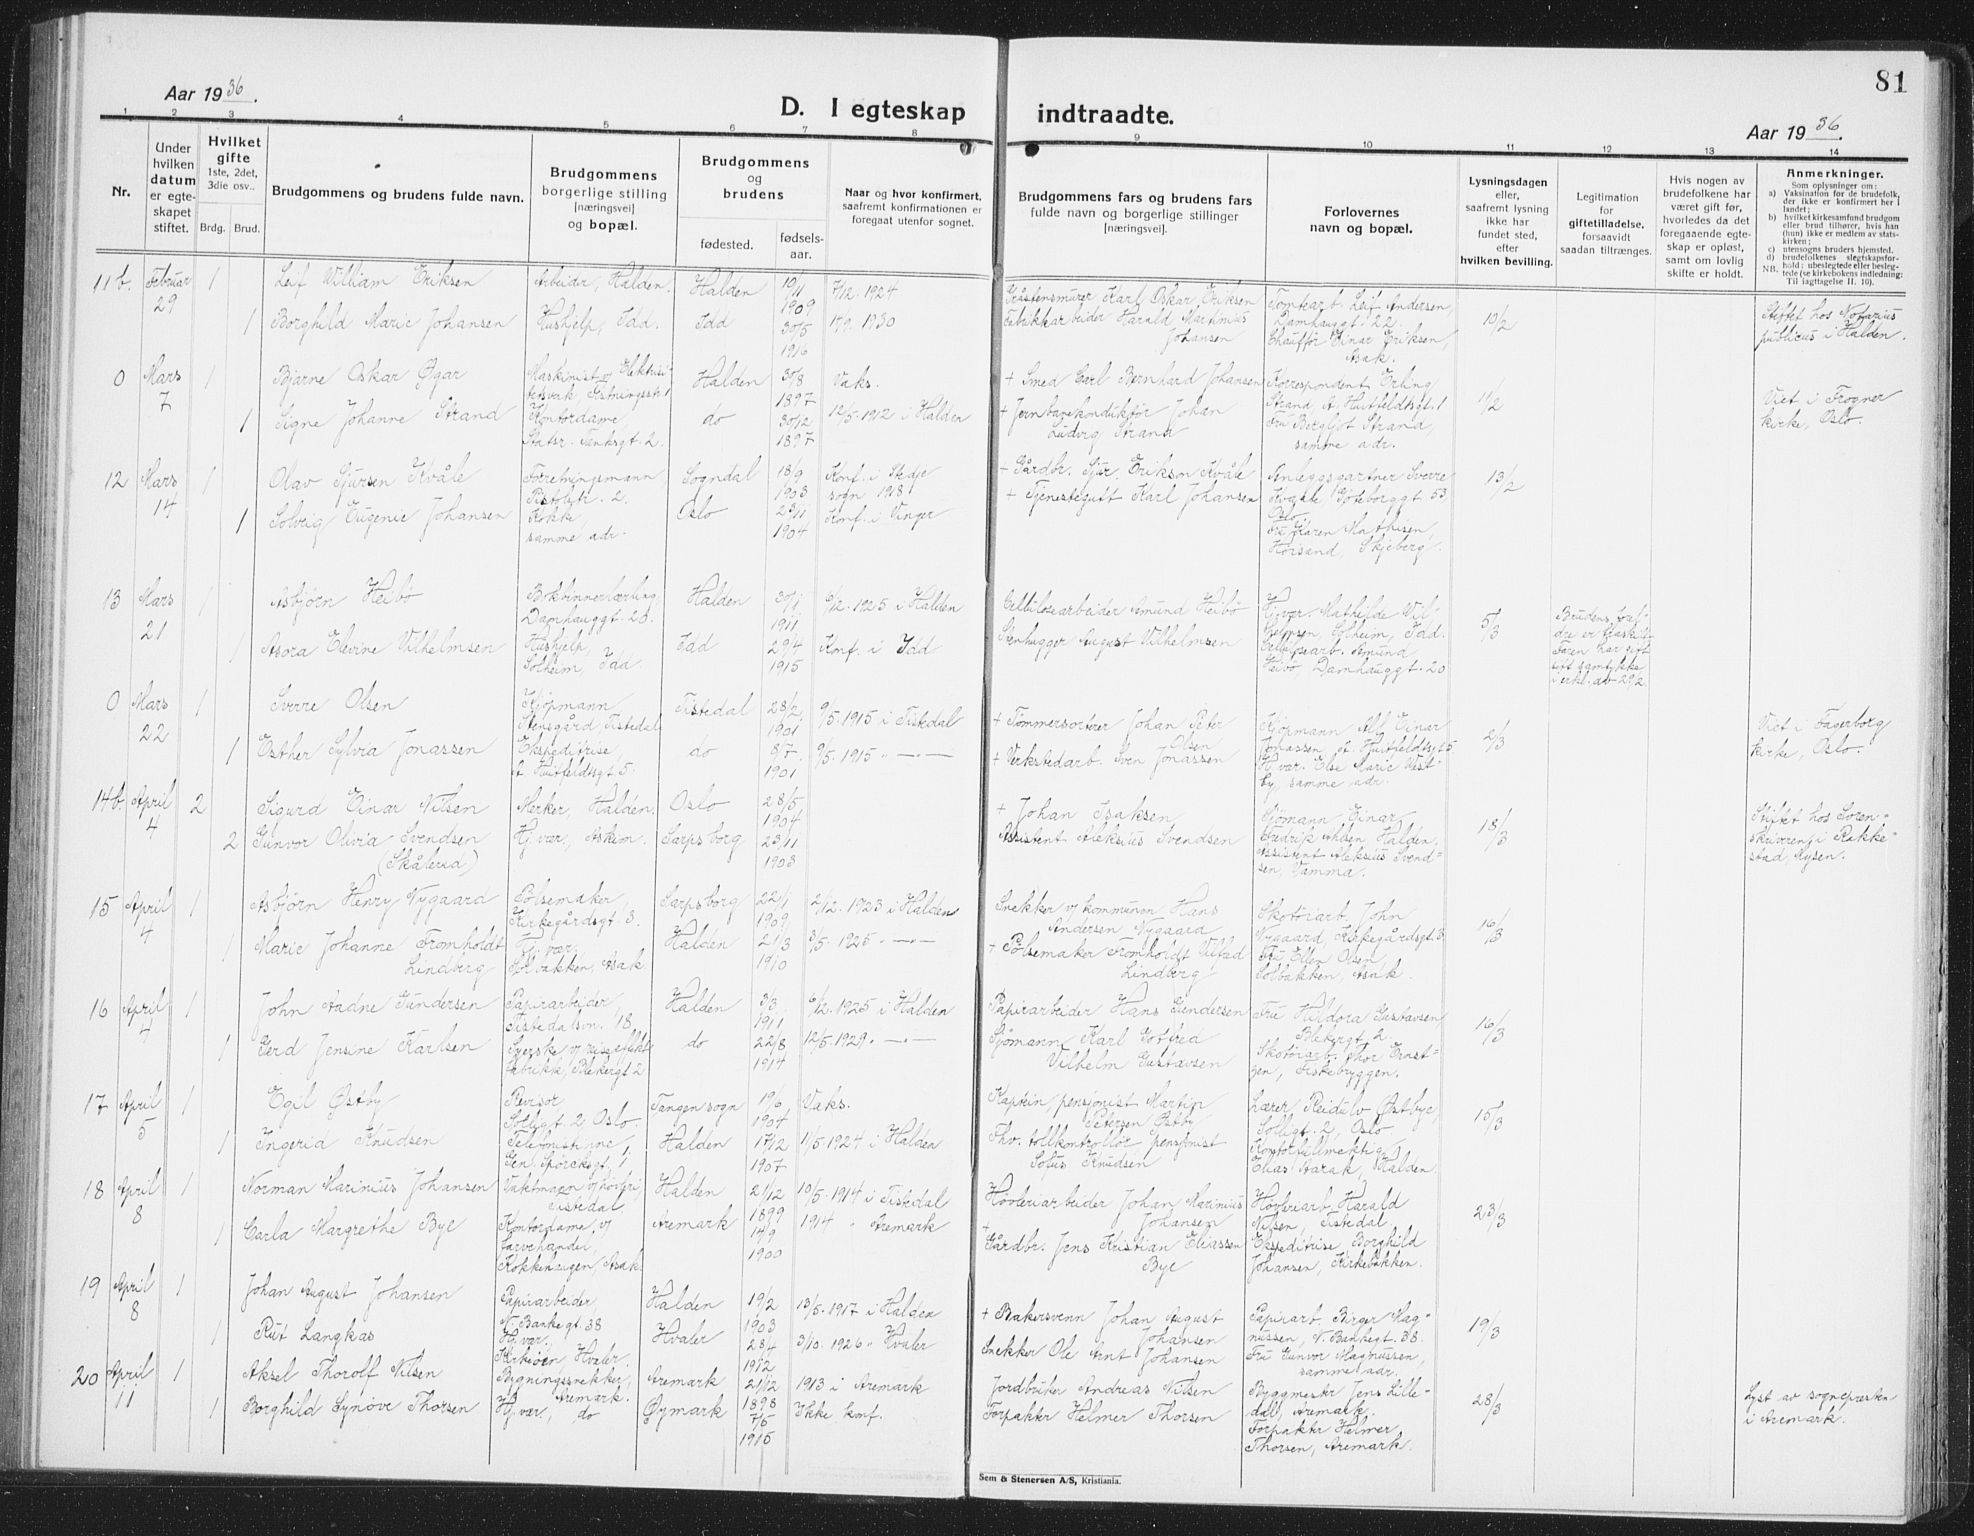 81
Aar 1936.
D. I egteskap indtraadte.
Aar 1936.
1 2 3 4 5 6 7 8 9 10 11 12 13 14
Nr.
Under hvilken datum er egteskapet stiftet.
Hvilket gifte 1ste, 2det, 3die osv..
Brdg. Brud.
Brudgommens og brudens fulde navn.
Brudgommens borgerlige stilling [næringsvei] og bopæl.
Brudgommens og brudens
fødested. fødsels-aar.
Naar og hvor konfirmert, saafremt konfirmationen er foregaat utenfor sognet.
Brudgommens fars og brudens fars fulde navn og borgerlige stillinger [næringsvei].
Forlovernes navn og bopæl.
Lysningsdagen eller, saafremt lysning ikke har fundet sted, efter hvilken bevilling.
Legitimation for giftetilladelse, forsaavidt saadan tiltrænges.
Hvis nogen av brudefolkene har været gift før, hvorledes da det foregaaende egteskap er opløst, samt om lovlig skifte er holdt.
Anmerkninger.
Som oplysninger om:
a) Vaksination for de brudefolk, der ikke er konfirmert her i landet;
b) hvilket kirkesamfund brudgom eller brud tilhører, hvis han (hun) ikke er medlem av statskirken;
c) utensogns bruders hjemsted.
d) brudefolkenes slegtskapsforhold: ubeslegtede eller beslegtede (se kirkebokens indledning: Til iagttagelse II. 10).
NB.
11b. Februar 29 1 Leif William Eriksen Arbeider, Halden. Halden 10/1 1909 7/12. 1924 Gråstensmurer Karl Oskar Eriksen Tomtearb. Leif Andersen, Damhauggt. 22. 10/2 Stiftet hos Notarius publicus i Halden.
1 Borghild Marie Johansen Hushjelp, Idd. Idd 30/5 1916 1930 Fabrikkarbeider Harald Martinius Johansen Chauffør Einar Eriksen, Asak.
0 Mars 7 1 Bjarne Oskar Øgar Maskinist v/ Halden 30/8 1897 Vaks. + Smed Carl Bernhard Johansen Korrespondent Erling Strand, A. Huitfeldtsgt. 1 11/2 Viet i Frogner kirke, Oslo.
1 Signe Johanne Strand Kontordame, do 30/12 1897 12/5. 1912 i Halden + Jernbanekonduktør Johan Ludvig Strand Fru Bergljot Strand, samme adr.
12 Mars 14 1 Olav Sjursen Kvåle Forretningsmann, Sogndal 18/9 1903 Konf. i sogn 1918 + Gårdbr. Sjur Erikson Kvåle Anleggsgartner Sverre Kvaale, Göteborggt 53 Oslo 13/2
1 Solveig Eugenie Johansen Kokke, samme adr. Oslo 23/11 1904 Konf. i Vinger + Tjenestegutt Karl Johansen Fru Karen Mathisen, Høisand, Skjeberg.
13 Mars 21 1 Asbjørn Heibö Bokbinnerlærling Damhauggt. 20. Halden 30/1 1911 6/12. 1925 i Halden Cellulosearbeider Amund Heibö Hj. vær. Mathilde Vilhelmsen, Solheim, Idd. 5/3
1 Asora Elevine Vilhelmsen Hushjelp, Solheim, Idd Idd 29/4 1915 Konf. i Idd Stenhugger August Vilhelmsen Cellulosearb. Amund Heibö, Damhauggt. 20
0 Mars 22 1 Sverre Olsen Kjöpmann Stensgård, Tistedal Tistedal 28/2 1901 9/5. 1915 i Tistedal + Tømmersorterer Johan Peter Olsen Kjöpmann Alf Einar Jonassen, A. Huitfeldtsgt 5 2/3 Viet i Fagerborg kirke, Oslo.
1 Esther Sylvia Jonassen Ekspeditrise, A. Huitfeldtsgt 5. do 8/7. 1901 9/5. 1915 " — " — + Verkstedarb. Sven Jonassen Hj. vær. Else Marie Vestby, samme adr.
14b. April 4 2 Sigurd Einar Nilsen Merker, Halden. Oslo 28/5 1904 + Johan Isaksen Sjömann Einar Fredrik Halden. 18/3 Stiftet hos Sorenskriveren i Rakkestad, Mysen.
2 Gunvor Olivia Svendsen (Skålerud) Hj. vær, Askim. Sarpsborg 23/11 1903 Assistent Aleksius Svendsen Assistent Aleksius Svendsen, Vamma.
15 April 4 1 Asbjörn Henry Nygaard Pölsemaker, Kirkegårdsgt. 3. Sarpsborg 22/1 1909 2/12. 1923 i Halden Snekker v/ kommunen Hans Andersen Nygaard Skotöiarb. John Nygaard, Kirkegårdsgt. 3. 16/3
1 Marie Johanne Fromholdt Lindberg Hj. vær. Solbakken, Asak Halden 21/3 1910 3/5. 1925 " — " — + Pølsemaker Fromholdt Vilfred Lindberg Fru Ellen Olsen, Solbakken, Asak.
16 April 4 1 John Aadne Gundersen Papirarbeider, Tistedalsvn. 18 Halden 3/3 1911 6/12. 1925 i Halden Papirarbeider Hans Gundersen Fru Hildora Gustavsen Blekergt. 2 16/3
1 Gerd Jensine Karlsen Syerske v/ reiseeffektfabrikk, Blekergt 2 do 22/8 1914 12/5. 1929. — " — Sjömann Karl Gotfred Vilhelm Gustavsen Skotöiarb. Thor Ernstzen, Fiskebryggen.
17 April 5 1 Egil Østby Revisor Solligt. 2 Oslo. Tangen sogn 19/6 1904 Vaks. Kaptein, pensjonist Martin Petersen Østby Lærer Reidulv Østbye, Solligt. 2, Oslo 15/3
1 Ingerid Knudsen Telefonistinne Gen. Spörcksgt. 1 Halden 17/12 1907 11/5. 1924 i Halden Fhv. tollkontrollör, pensjonist Sofus Knudsen Kontorfullmektig Elias Aarak, Halden.
18 April 8 1 Norman Marinius Johansen Vaktmann v/ høvleri, Tistedal Halden 21/12 1899 10/5. 1914 i Tistedal Høvleriarbeider Johan Marinius Johansen Høvleriarb. Harald Nilsen, Tistedal 23/3
1 Carla Margrethe Bye Kontordame v/ farvehandel, Kokkehaugen, Asak. Aremark 14/9 1900 1914 " Aremark + Gårdbr. Jens Kristian Eliassen Bye Ekspeditrise Borghild Johansen, Kirkebakken.
19 April 8 1 Johan August Johansen Papirarbeider, N. Bankegt. 38 Halden 19/2 1903 13/5. 1917 i Halden + Bakersvenn Johan August Johansen Papirarb. Birger Magnussen, N. Bankegt. 38 19/3
1 Rut Langkås Hj. vær. Kirköen, Hvaler. Hvaler 28/4 1912 3/10. 1926 " Hvaler Snekker Ole Arnt Johansen Fru Gunvor Magnussen, samme adr.
20 April 11 1 Aksel Thorolf Nilsen Bygningssnekker, Aremark. Aremark 21/12 1898 1913 i Aremark Jordbruker Andreas Nilsen Byggmestr. Jens Lilledal, Aremark. 28/3 Lyst av sogneprœsten i Aremark.
1 Borghild Synöve Thorsen Hj. vær., do Øymark 7/5 1915 Ikke konf. Forpakter Helmer Thorsen Forpakter Helmer Thorsen, Aremark.
Sem & Stenersen A/S, Kristiania.